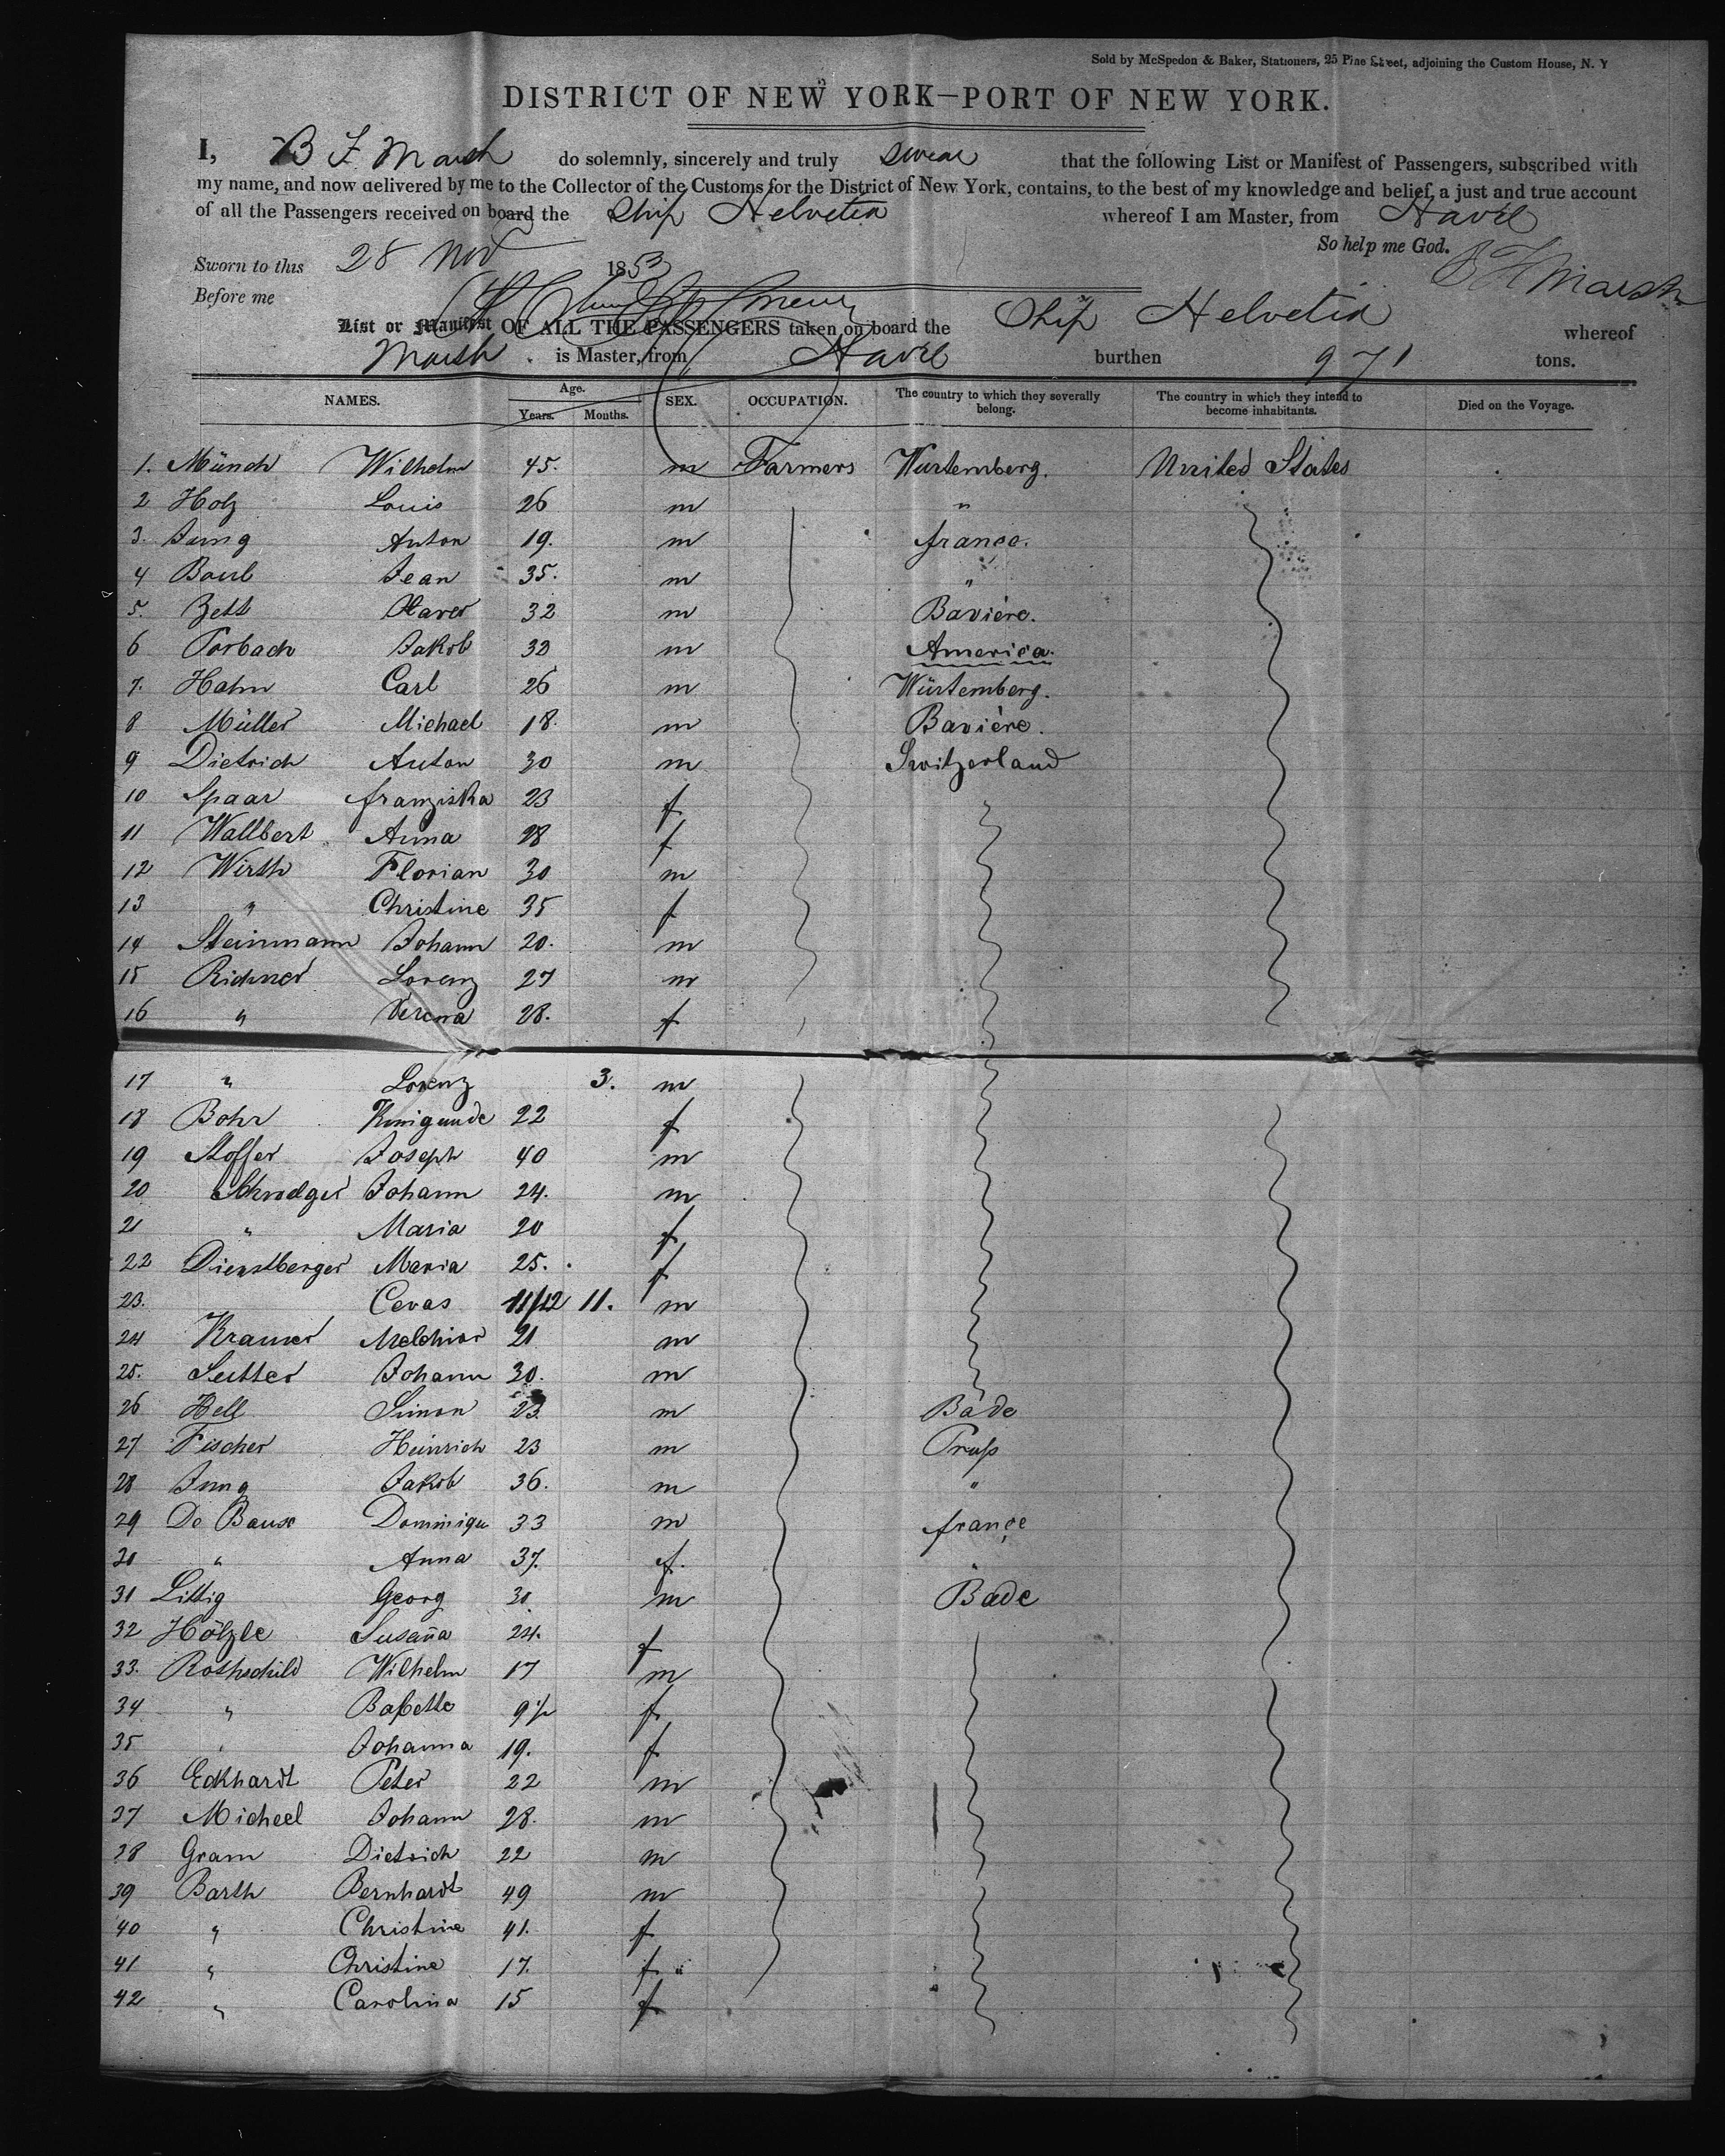 Sold by McSpedon & Baker, Stationers, 25 Pine Street, adjoining the Custom House, N. Y
DISTRICT OF NEW YORK—PORT OF NEW YORK.
I, B F Marsh do solemnly, sincerely and truly swear that the following List or Manifest of Passengers, subscribed with
my name, and now delivered by me to the Collector of the Customs for the District of New York, contains, to the best of my knowledge and belief, a just and true account
of all the Passengers received on board the Ship Helvetia whereof I am Master, from Havre
So help me God.
Sworn to this 28 Nov 1853 B F Marsh
Before me
List or Manifest OF ALL THE PASSENGERS taken on board the Ship Helvetia whereof
Marsh is Master, from Havre burthen 971 tons.
NAMES. Age. Years. Months. SEX. OCCUPATION. The country to which they severally belong. The country in which they intend to become inhabitants. Died on the Voyage.
1. Münch Wilhelm 45. m Farmers Wurtemberg. United States
2 Holz Louis 26 m "
3. Jung Anton 19. m france.
4 Jean 35. m "
5. Zett Xaver 32 m Bavière.
6 Jakob 32 m America.
7. Hahn Carl 26 m Würtemberg.
8 Müller Michael 18. m Bavière.
9 Dietrich Anton 30 m Switzerland
10 Spaar franziska 23 f
11 Wallbert Anna 28 f
12 Wirth Florian 30 m
13 " Christine 35 f
14 Steinmann Johann 20. m
15 Richner Lorenz 27 m
16 " Verena 28. f
17 " Lorenz 3. m
18 Bohr Kunigunde 22 f
19 Stoffer Joseph 40 m
20 Johann 24. m
21 " Maria 20 f
22 Dienstberger Maria 25. f
23. 11/12 11. m
24 Kramer Melchior 21 m
25. Sutter Johann 30. m
26 Hell Simon 23 m Bade
27 Fischer Heinrich 23 m Pruss
28 Jung Jakob 36. m "
29 De Dominique 33 m france
30 " Anna 37. f. "
31 Littig Georg 30 m Bade
32 Hölzle Susaña 24. f
33. Rothschild Wilhelm 17 m
34 " Babette 9½ f
35 " Johanna 19. f
36 Eckhardt Peter 22 m
37 Micheel Johann 28. m
38 Gram Dietrich 22 m
39 Barth Bernhardt 49 m
40 " Christine 41. f
41 " Christine 17. f
42 " Carolina 15 f